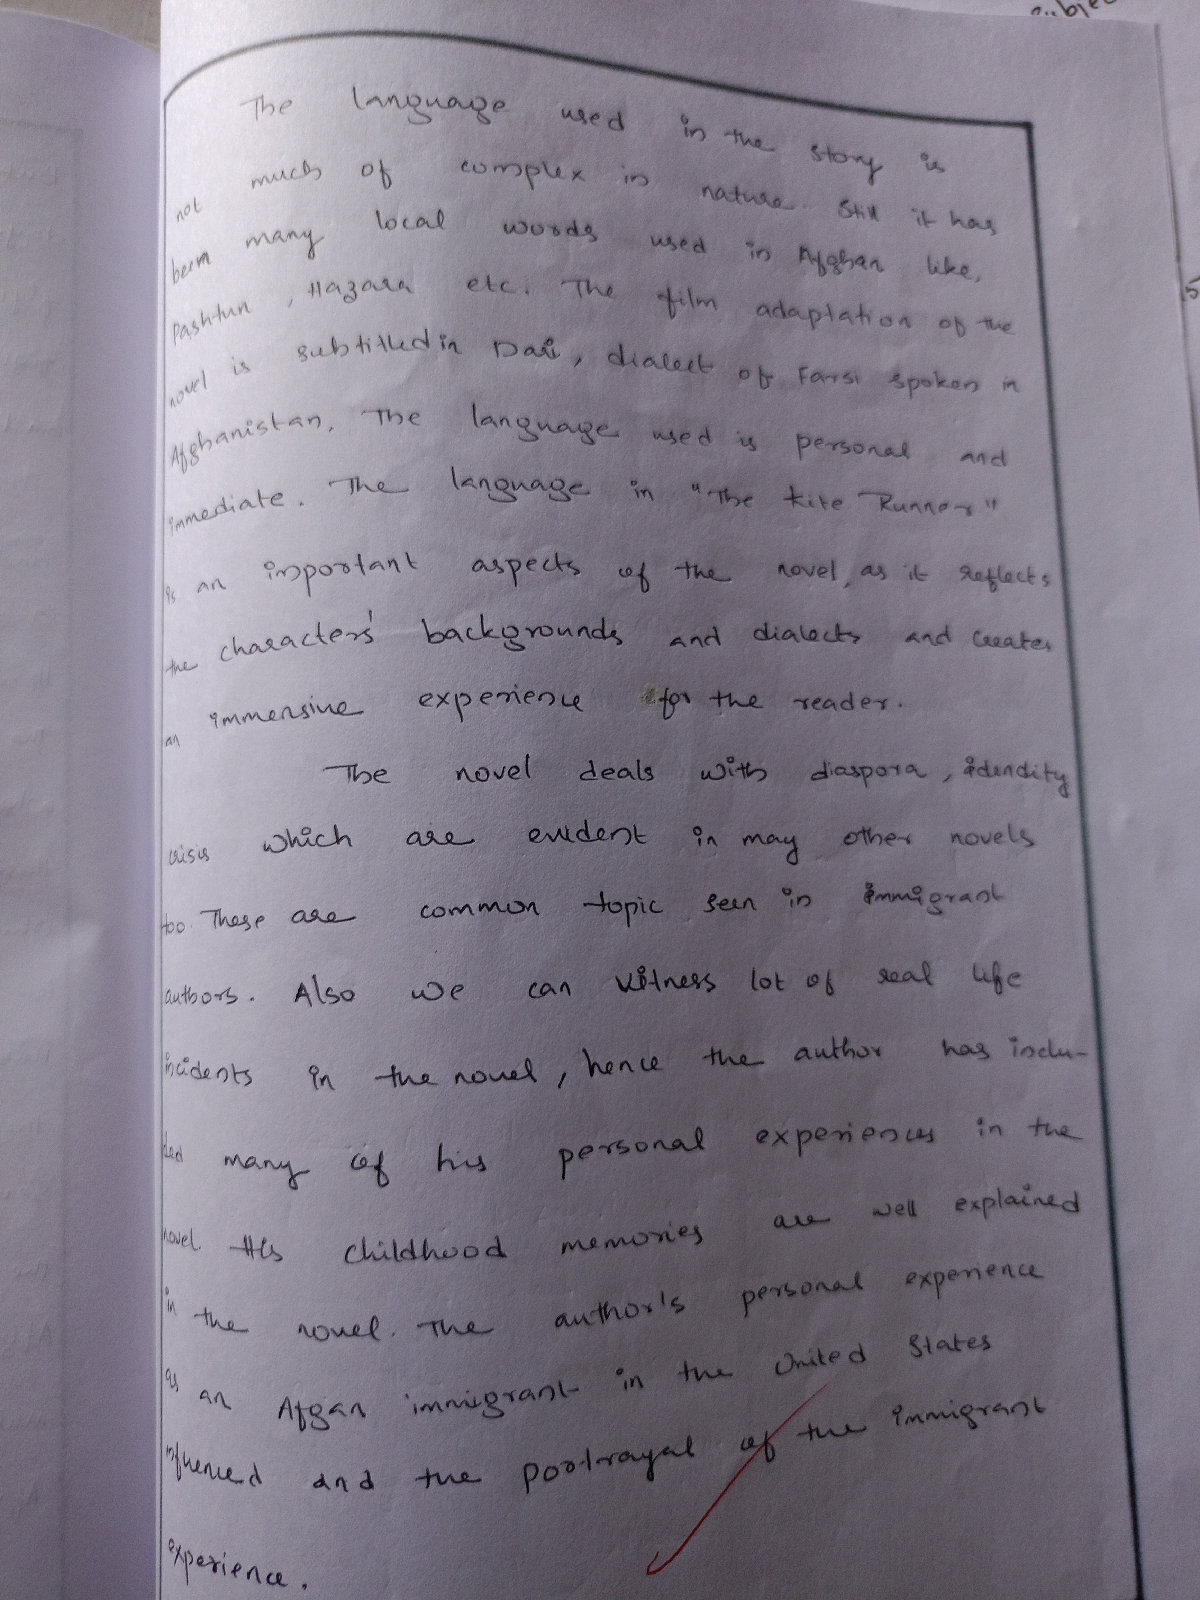 The language used in the story is
not much of complex in nature. Still it has
been many local words used in Afghan like,
Pashtun, Hazara etc. The film adaptation of the
novel is subtitled in Dari, dialect of Farsi spoken in
Afghanistan. The language used is personal and
immediate. The language in "The Kite Runner"
is an important aspects of the novel, as it reflects
the characters' backgrounds and dialects and creates
an immersive experience for the reader.
The novel deals with diaspora, idendity
crisis which are evident in may other novels
too. These are common topic seen in immigrant
authors. Also we can witness lot of real life
incidents in the novel, hence the author has inclu-
ded many of his personal experiences in the
novel. His childhood memories are well explained
in the novel. The author's personal experience
as an Afgan immigrant in the United States
influenced and the portrayal of the immigrant
experience.